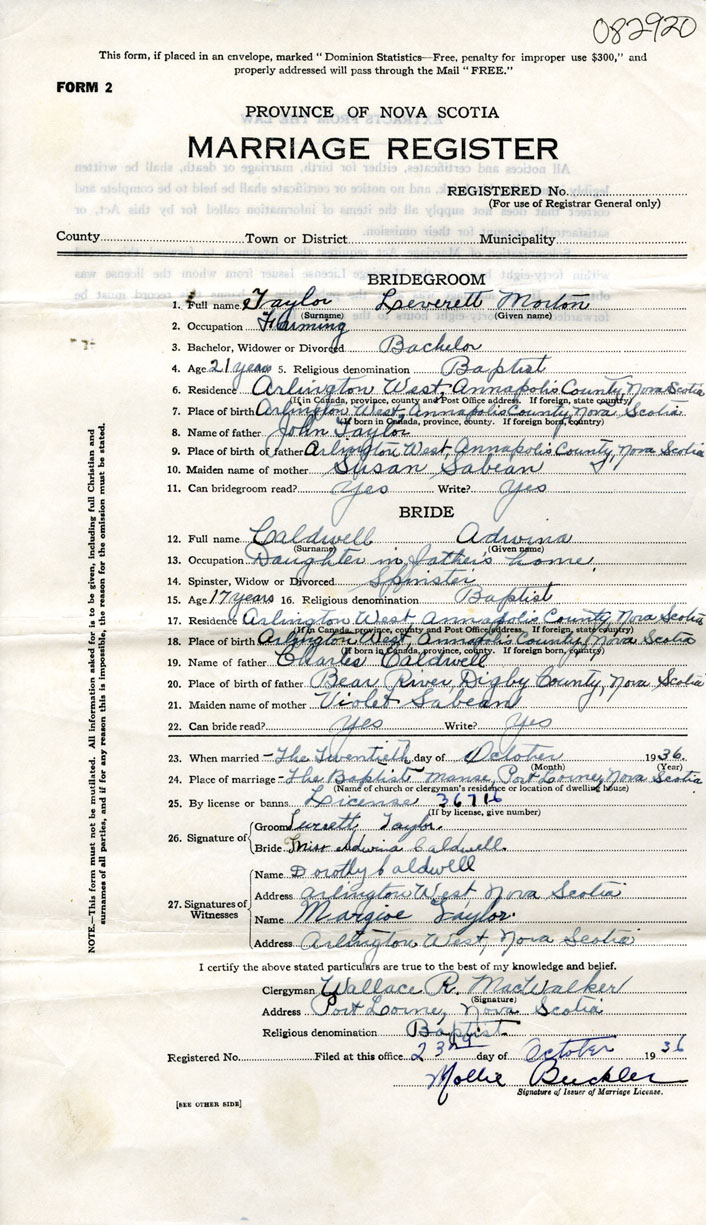 082920
This form, if placed in an envelope, marked "Dominion Statistics—Free, penalty for improper use $300," and
properly addressed will pass through the Mail "FREE."
FORM 2
PROVINCE OF NOVA SCOTIA
MARRIAGE REGISTER
REGISTERED No.
(For use of Registrar General only)
County Town or District Municipality
BRIDEGROOM
1. Full name Taylor Leverett Morton
(Surname) (Given name)
2. Occupation Farming
3. Bachelor, Widower or Divorced Bachelor
4. Age 21 years 5. Religious denomination Baptist
6. Residence Arlington West, Annapolis County, Nova Scotia
(If in Canada, province, county and Post Office address. If foreign, state country)
7. Place of birth Arlington West, Annapolis County, Nova Scotia
(If born in Canada, province, county. If foreign born, country)
8. Name of father John Taylor
9. Place of birth of father Arlington West, Annapolis County, Nova Scotia
10. Maiden name of mother Susan Sabean
11. Can bridegroom read? Yes Write? Yes
BRIDE
12. Full name Caldwell Adwina
(Surname) (Given name)
13. Occupation Daughter in father's home.
14. Spinster, Widow or Divorced Spinster
15. Age 17 years 16. Religious denomination Baptist
17. Residence Arlington West, Annapolis County, Nova Scotia
(If in Canada, province, county and Post Office address. If foreign, state country)
18. Place of birth Arlington West, Annapolis County, Nova Scotia
(If born in Canada, province, county. If foreign born, country)
19. Name of father Charles Caldwell
20. Place of birth of father Bear River Digby County, Nova Scotia
21. Maiden name of mother Violet Sabean
22. Can bride read? Yes Write? Yes
23. When married - The Twentieth day of October 1936.
(Month) (Year)
24. Place of marriage - The Baptist manse, Port Lorne, Nova Scotia
(Name of church or clergyman's residence or location of dwelling house)
25. By license or banns License 36716
(If by license, give number)
26. Signature of
Groom Leverett Taylor.
Bride Miss Adwina Caldwell.
27. Signatures of Witnesses
Name Dorothy Caldwell
Address Arlington West Nova Scotia
Name Margioe Taylor.
Address Arlington West, Nova Scotia
I certify the above stated particulars are true to the best of my knowledge and belief.
Clergyman Wallace R. MacWalker
(Signature)
Address Port Lorne, Nova Scotia
Religious denomination Baptist.
Registered No. Filed at this office 23rd day of October 1936
Mollie Buckler
Signature of Issuer of Marriage License.
[SEE OTHER SIDE]
NOTE.—This form must not be mutilated. All information asked for is to be given, including full Christian and
surnames of all parties, and if for any reason this is impossible, the reason for the omission must be stated.